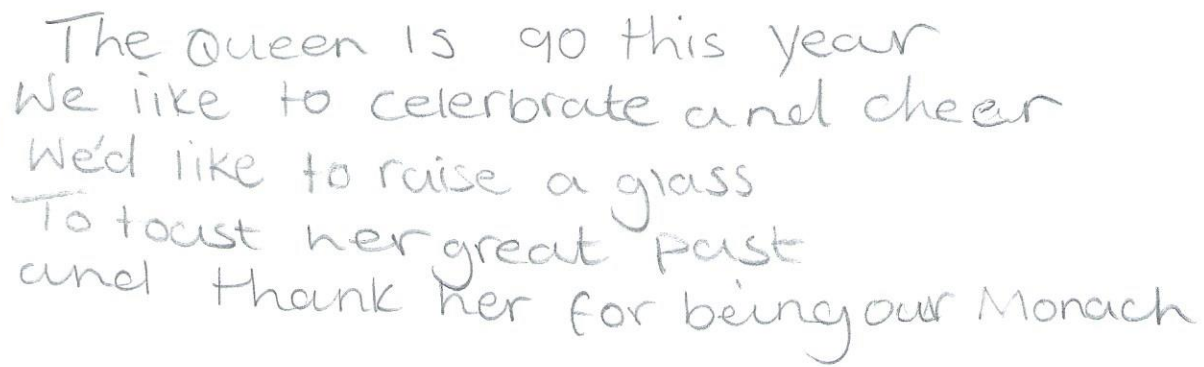 The Queen is 90 this year
We like to celerbrate and cheer
We'd like to raise a glass
To toast her great past
and thank her for being our Monach